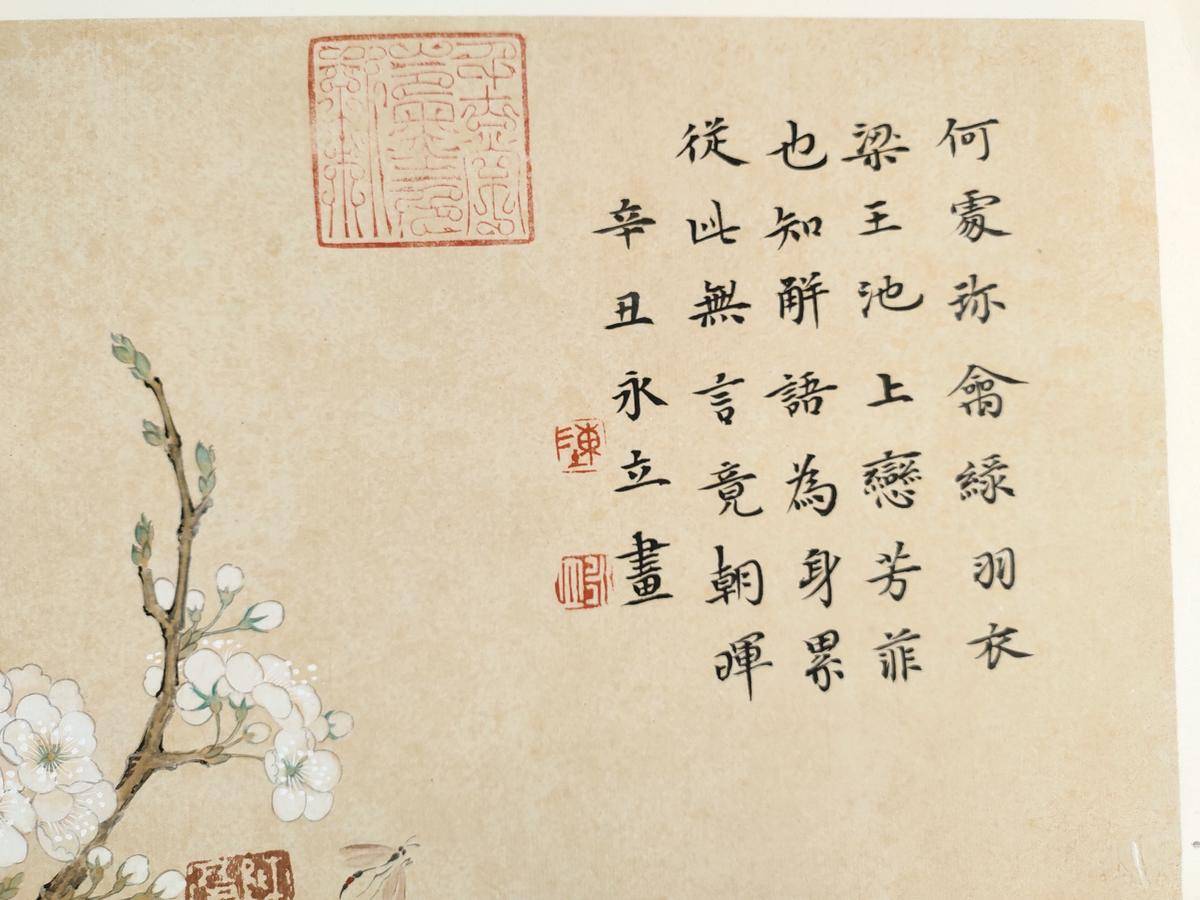 何處珎禽綠羽衣
梁王池上戀芳菲
也知解語為身累
從此無言竟朝暉
辛丑永立畫
陳